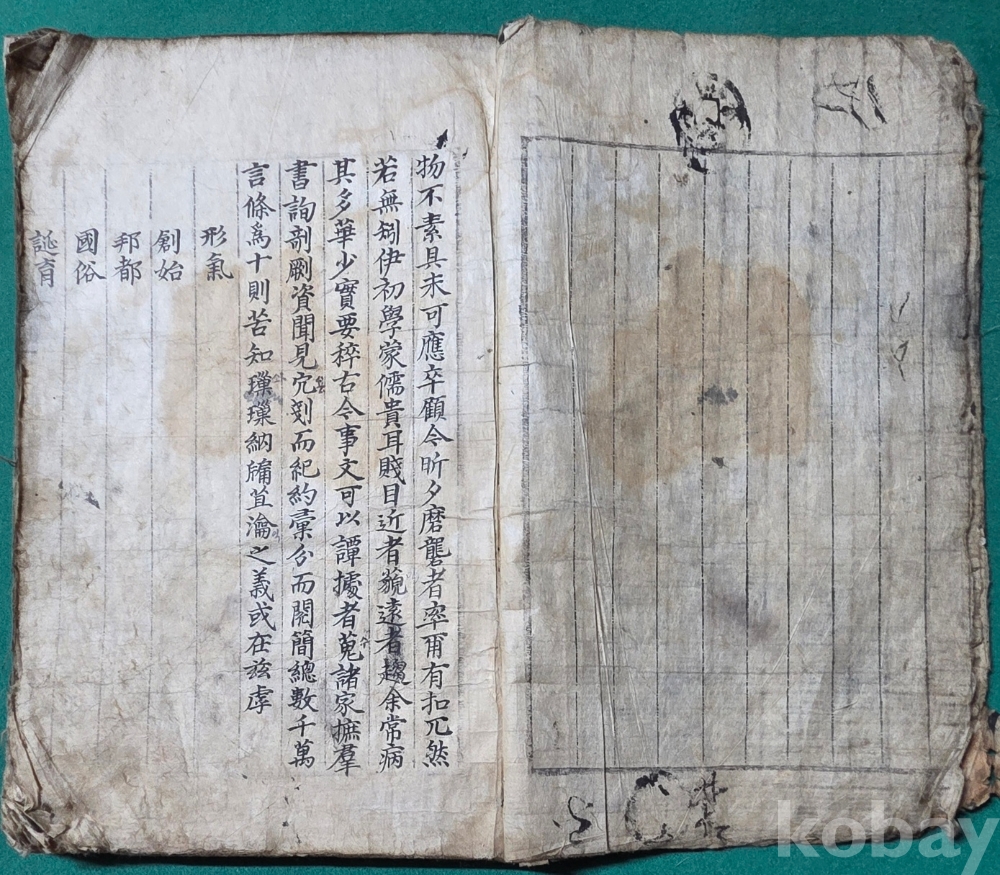 物不素具未可應卒顧令昕夕磨礱者率甭有扣兀然
若無矧伊初學蒙儒貴耳賤目近者藐遠者趨余常病
其多華少實要稡古今事文可以譚據者蒐諸家摭羣
書詢剖劂資聞見宂剗而紀約彙分而閱簡總數千萬
言條爲十則苦知璅璅納牖苴瀹之義或在玆虖
形氣
創始
邦都
國俗
誕育
kobay